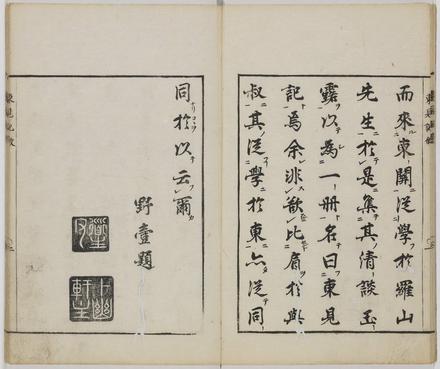 而來東關從學於羅山
先生於是集其清談玉
露以為一冊名曰東見
記焉余非敢比肩於與
叔其從學於東亦從同
同於以云爾
野壹題